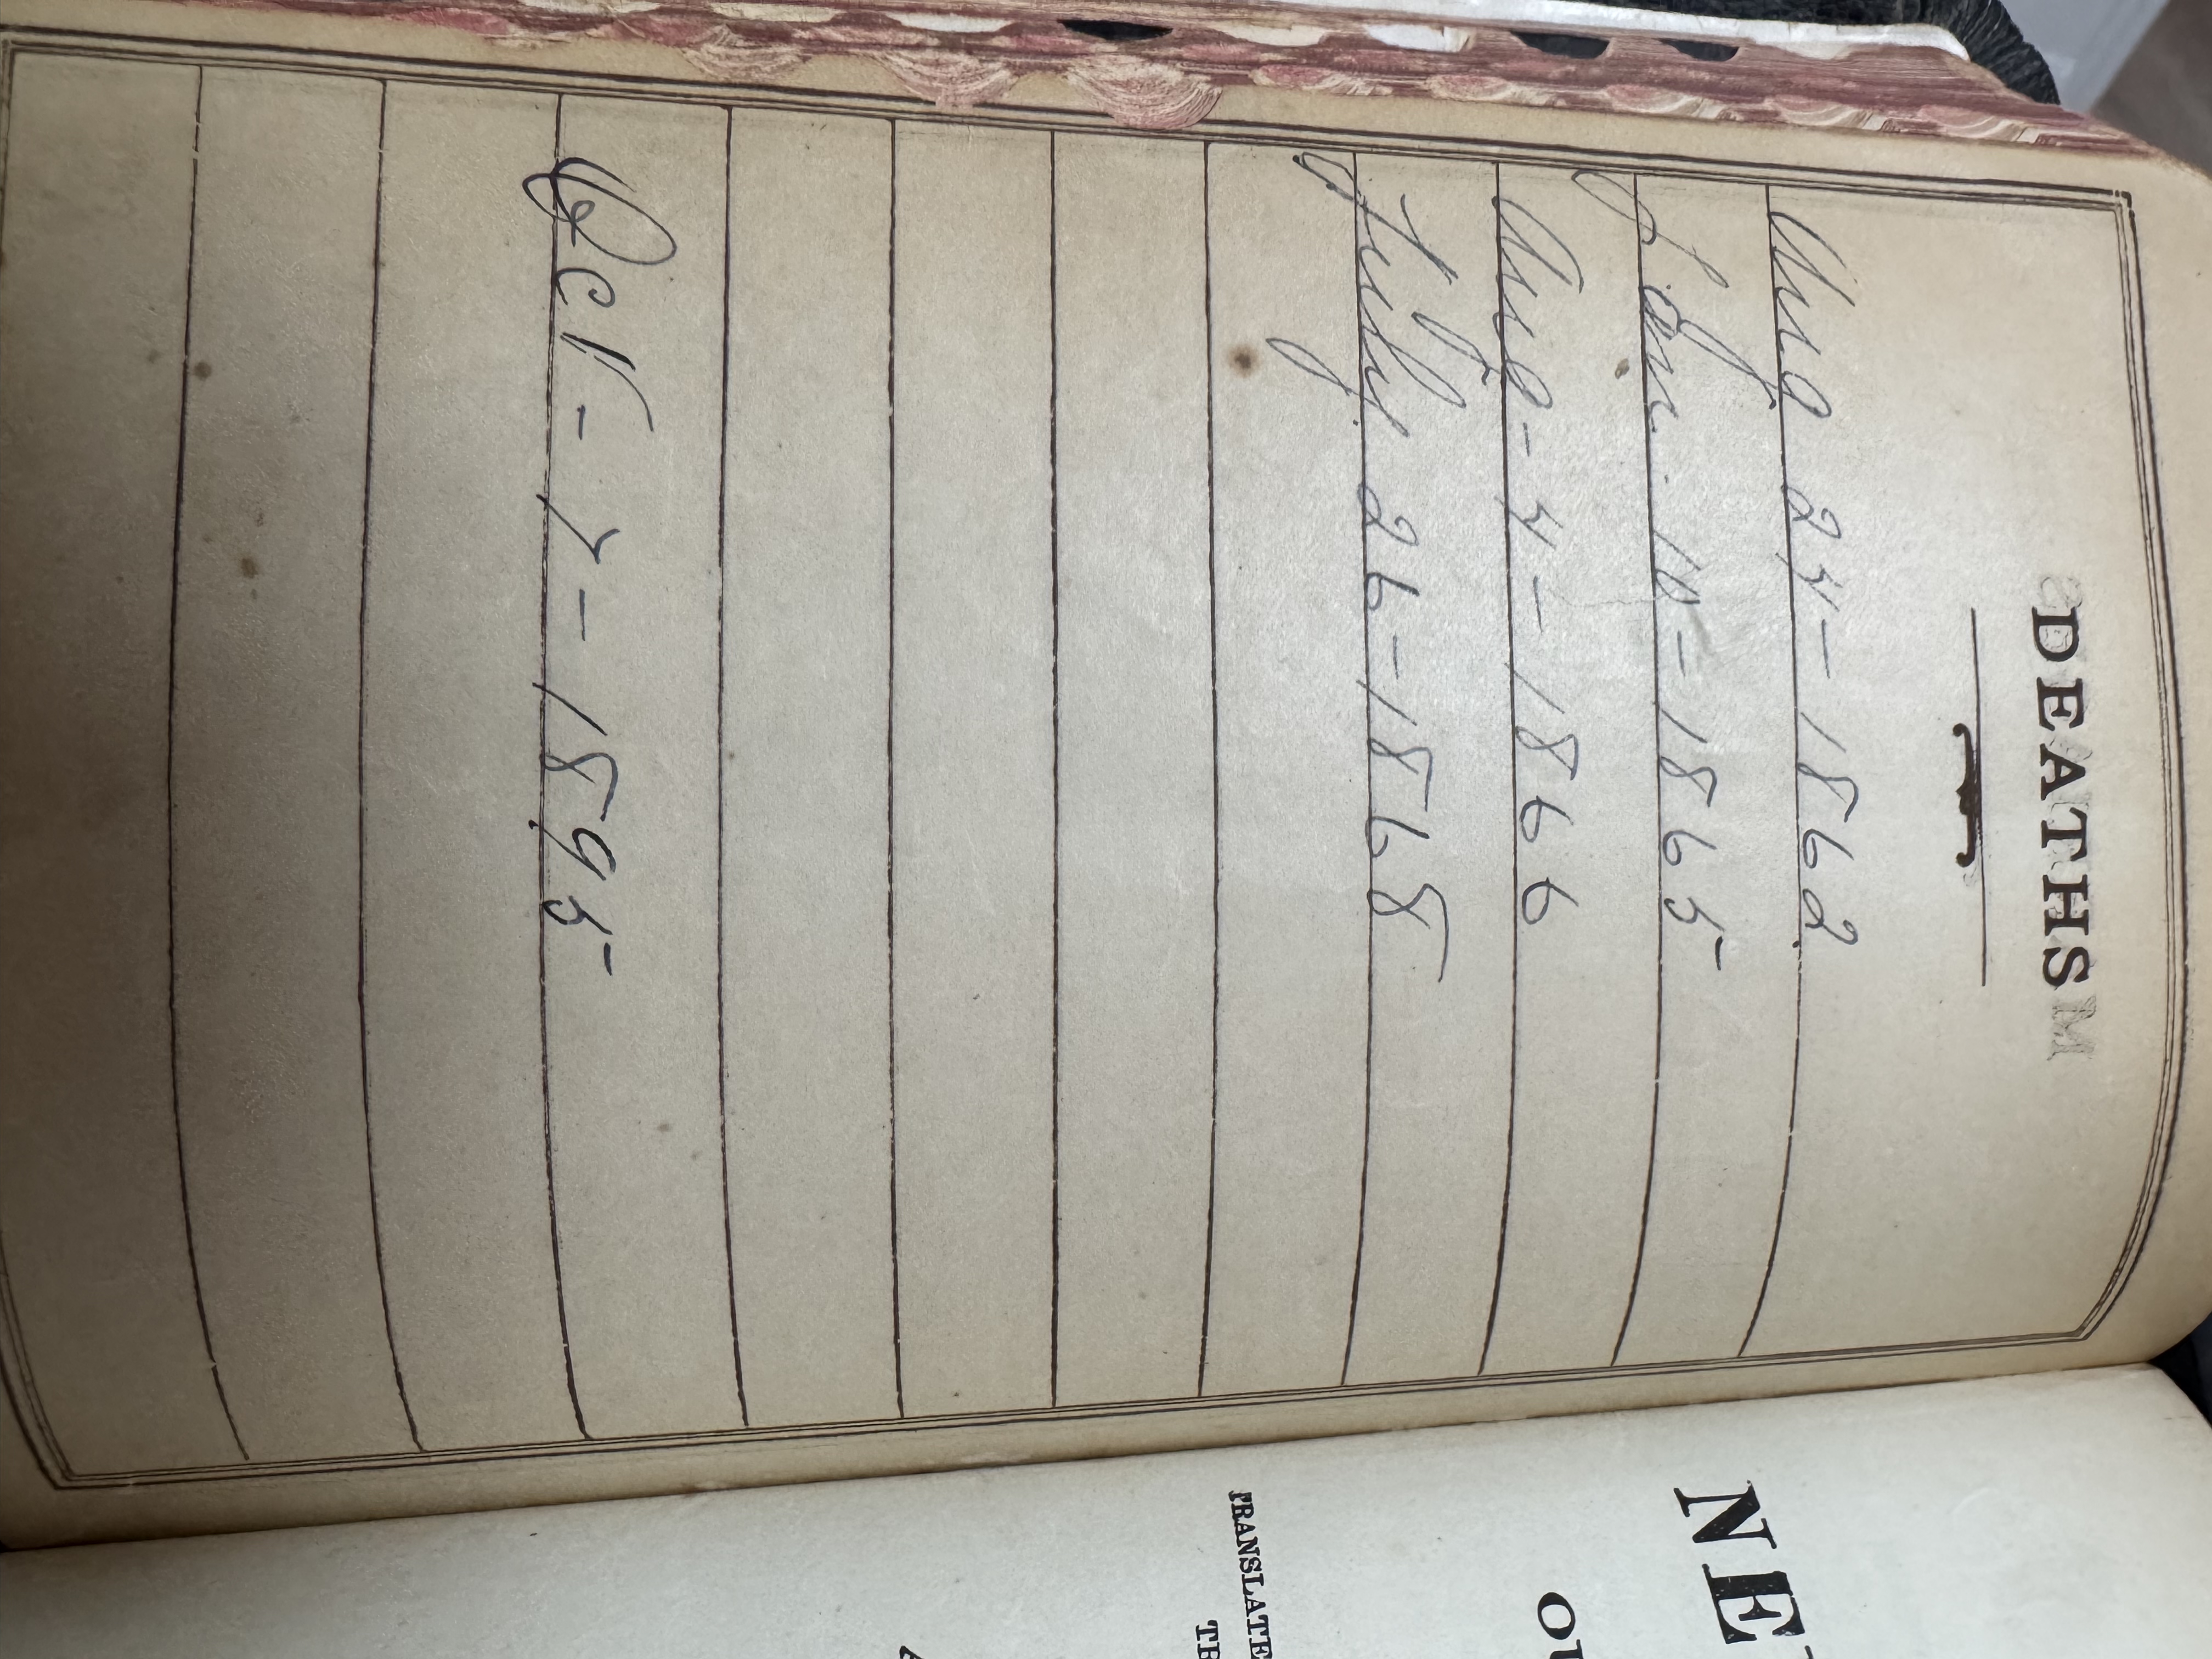 DEATHS
Aug 24 - 1862
Jan. 10 - 1865
Aug - 4 - 1866
July 26 - 1868
Oct - 7 - 1895
NE
OU
TRANSLATE